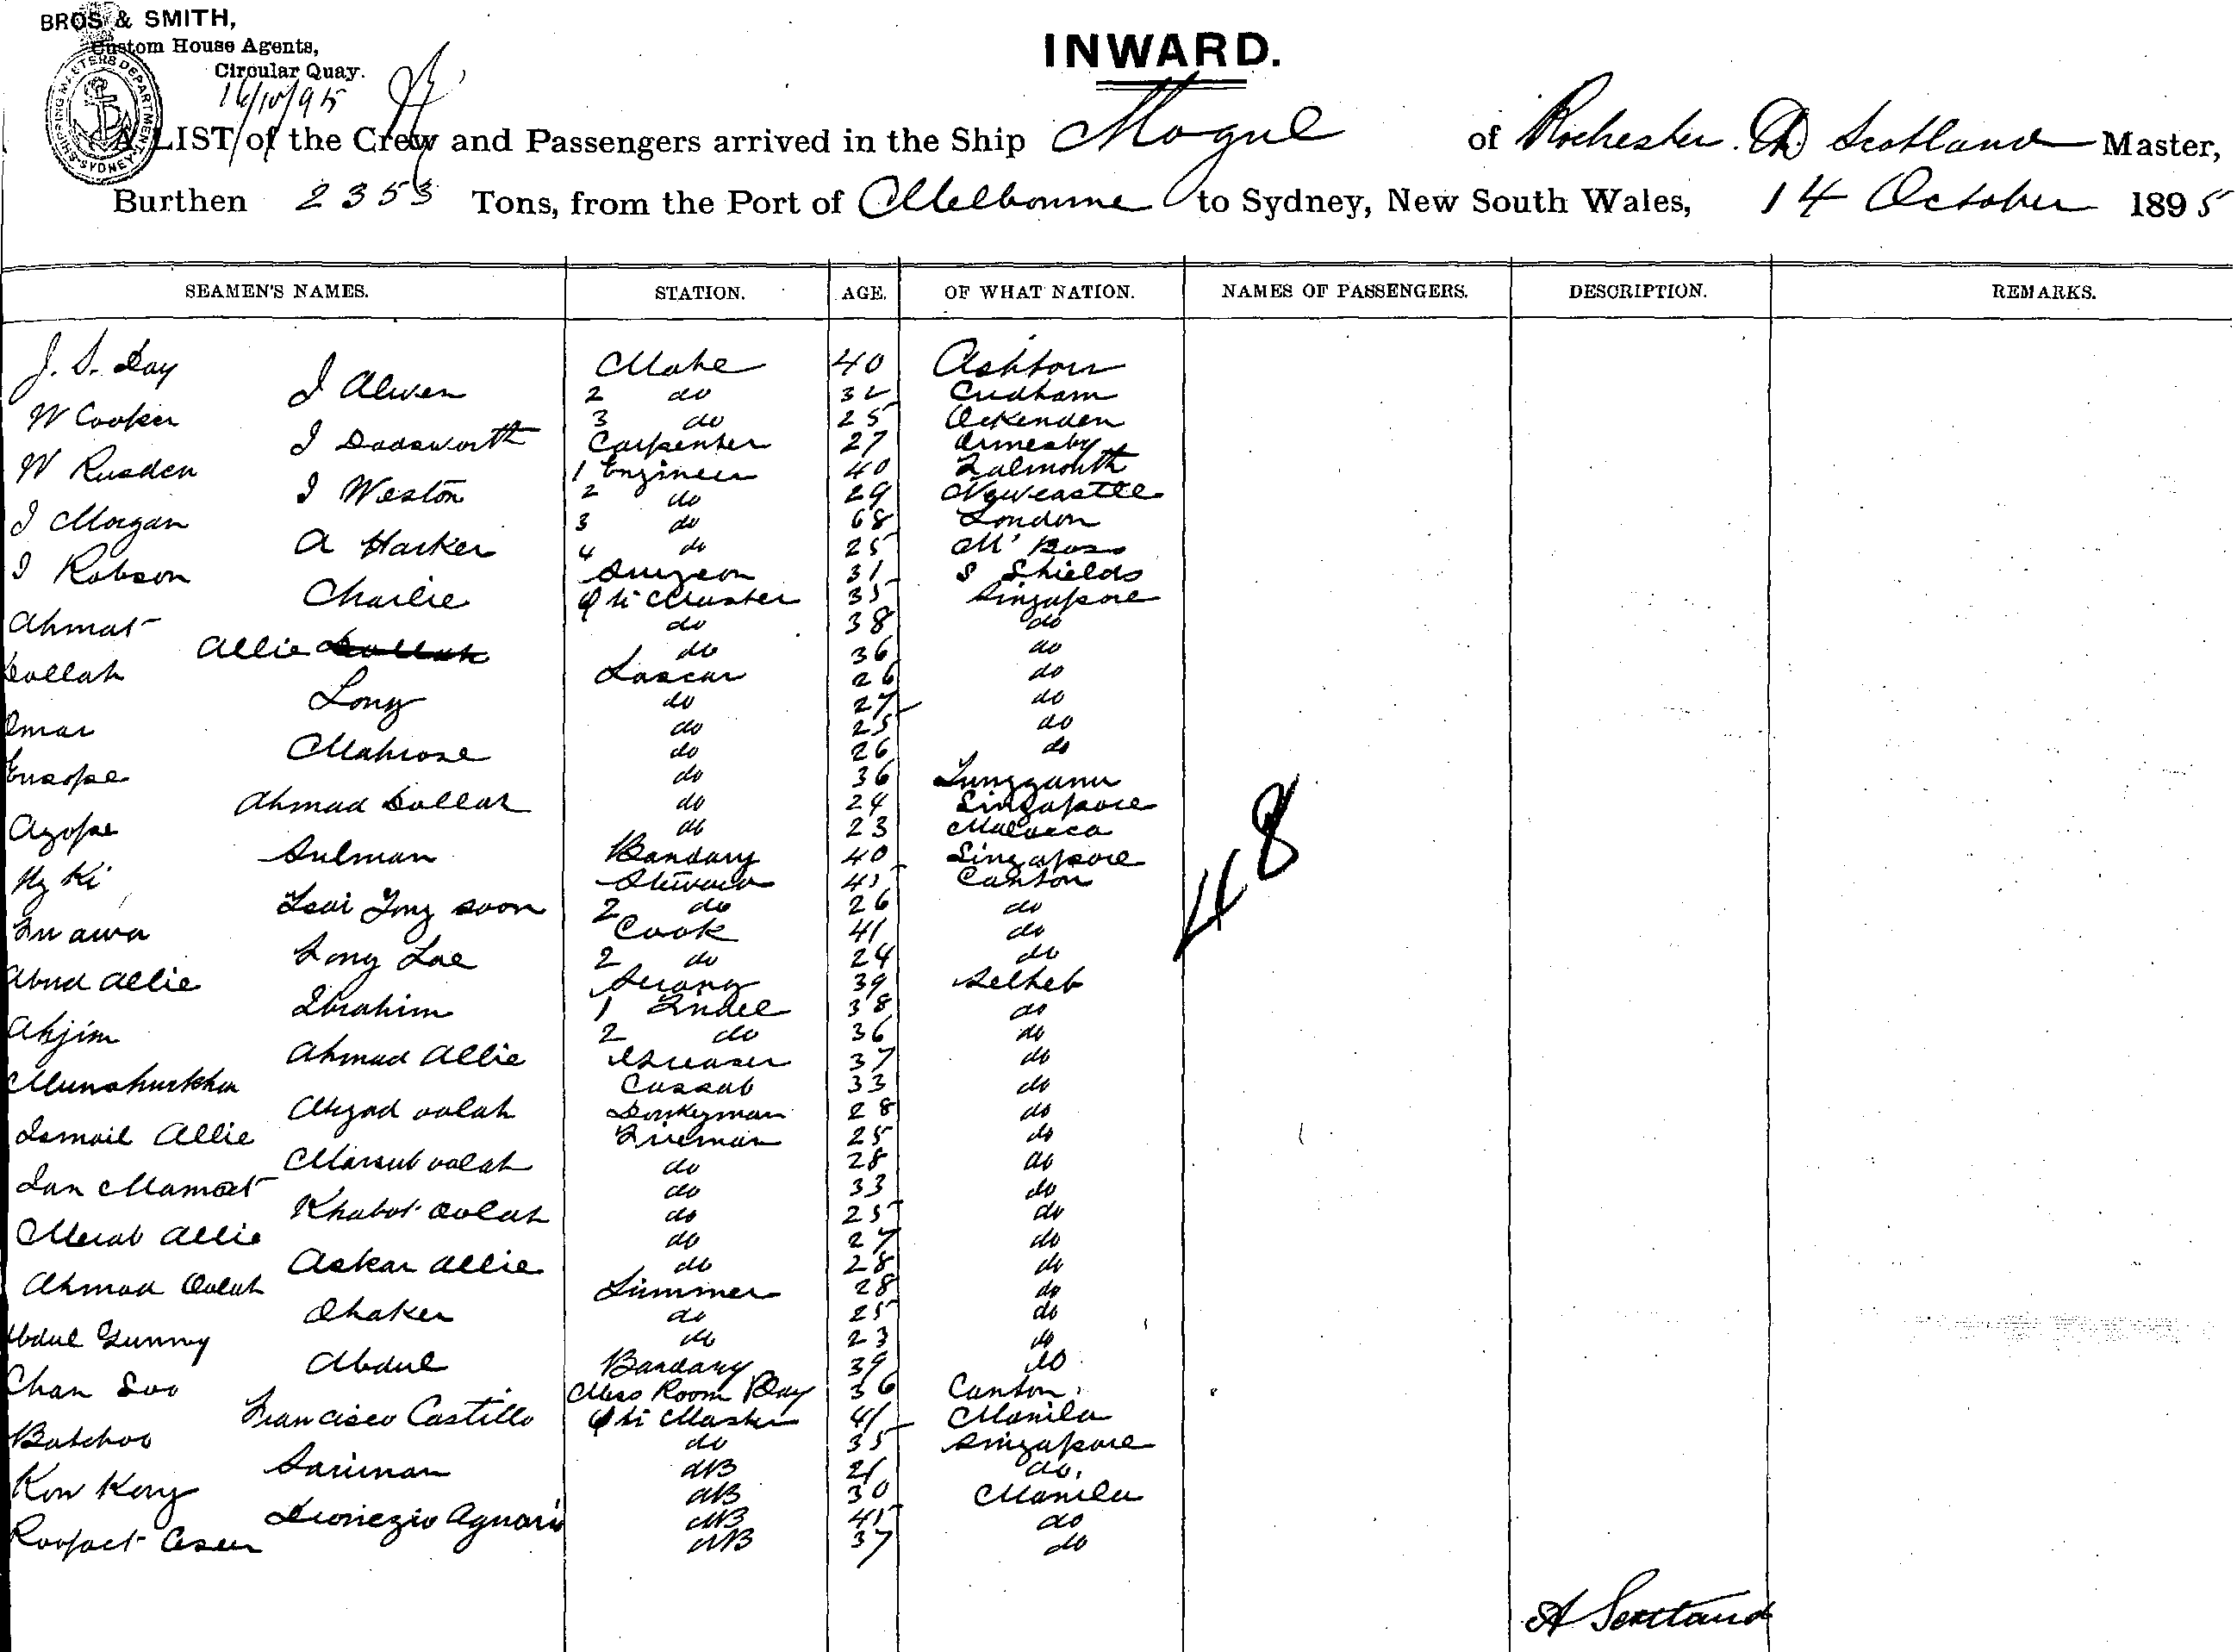 BROS & SMITH,
Custom House Agents,
Circular Quay.
16/10/95
SHIPPING MASTERS DEPARTMENT SYDNEY
INWARD.
A LIST of the Crew and Passengers arrived in the Ship Mogul of Rochester. A Scotland Master,
Burthen 2353 Tons, from the Port of Melbourne to Sydney, New South Wales, 14 October 1895
SEAMEN'S NAMES. STATION. AGE. OF WHAT NATION. NAMES OF PASSENGERS. DESCRIPTION. REMARKS.
J. S. Day Mate 40 Ashton
J Alwen 2 do 32 Cudham
W Cooker 3 do 25 Ockenden
J Dodsworth Carpenter 27 Ormesby
W Rusden 1 Engineer 40 Falmouth
J Weston 2 do 29 Newcastle
J Morgan 3 do 68 London
A Harker 4 do 25 M'Boro
J Robson Surgeon 31 S Shields
Charlie Qtr Master 35 Singapore
Ahmat do 38 do
Allie do 36 do
Dollah Lascar 26 do
Long do 27 do
Omar do 25 do
Mahrose do 26 do
Eusope do 36 Tungganu
Ahmad Dollah do 24 Singapore
Azope do 23 Malacca
Sulman Bandary 40 Singapore
Ng Ki Steward 45 Canton
Tsai Yong soon 2 do 26 do
Fu awa Cook 41 do
Long Lae 2 do 24 do
Abud Allie Serang 39 Selheb
Ibrahim 1 Tindel 38 do
Ahjim 2 do 36 do
Ahmad Allie Greaser 37 do
Munshurkha Cassab 33 do
Ahzad oolah Donkeyman 28 do
Ismail Allie Fireman 25 do
Marsub oolah do 28 do
Jan Mamat do 33 do
Khabot Oolah do 25 do
Merab Allie do 27 do
Askar Allie do 28 do
Ahmad Oolah Trimmer 28 do
Shaker do 25 do
Abdul Gunny do 23 do
Abdul Bandary 39 do
Chan Soo Mess Room Boy 36 Canton
Francisco Castillo Qtr Master 41 Manila
Batchoo do 35 Singapore
Sariman AB 21 do.
Kon Kong AB 30 Manila
Dionezio Agnaris AB 45 do
AB 37 do
48
A Scotland